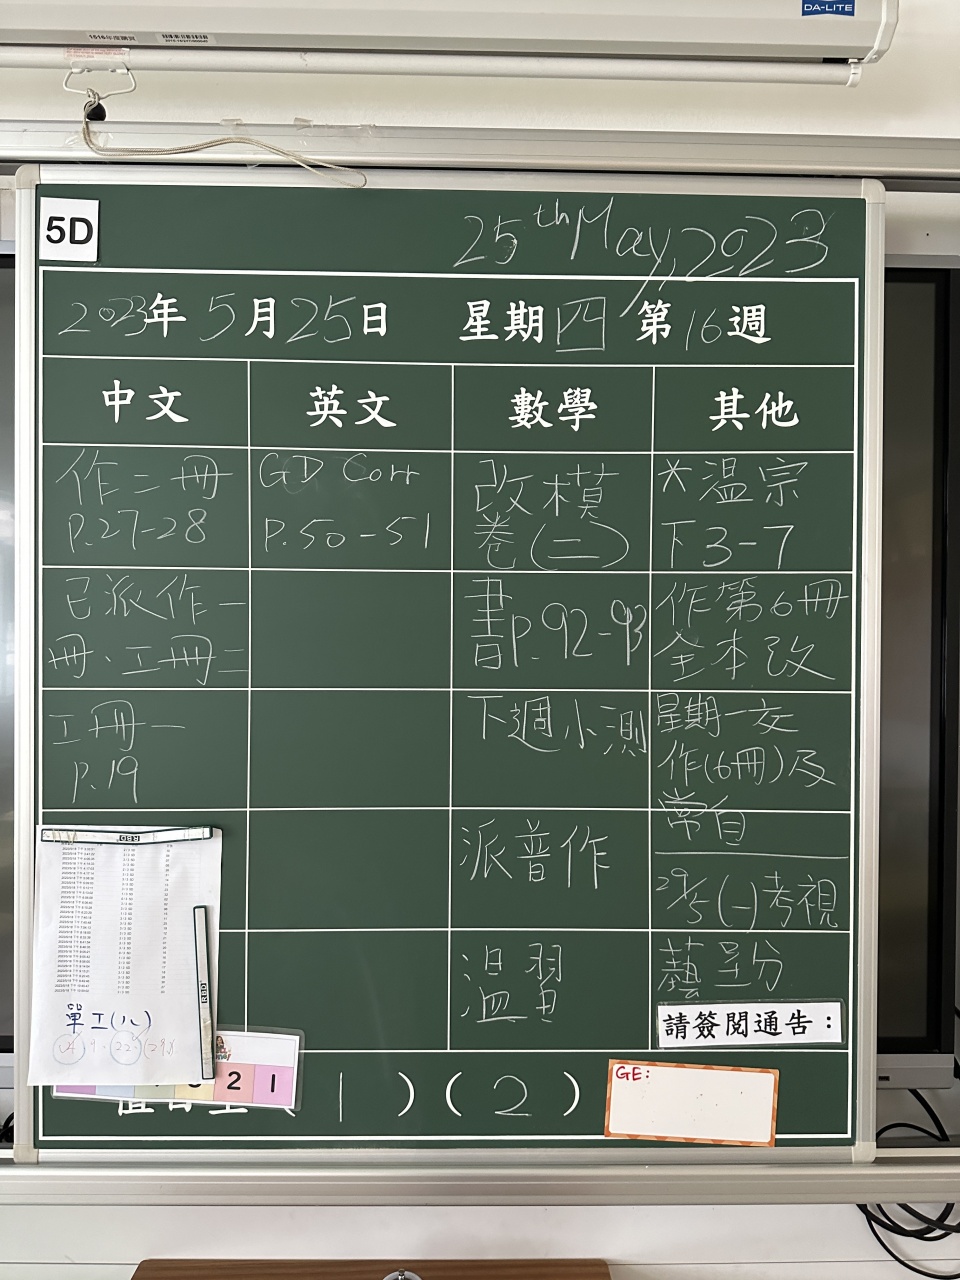 DA-LITE
5D
25th May, 2023
2023年5月25日 星期四 第16週
中文 英文 數學 其他
作二冊
P.27-28
已派作一
冊、工冊二
工冊一
P.19
GD Corr
P.50-51
改模
卷(二)
書P.92-93
下週小測
派普作
溫習
*溫宗
下3-7
作第6冊
全本改
星期一交
作(6冊)及
常自
29/5(一)考視
藝呈分
請簽閱通告:
RBD
RBD
單工(八)
2 1
(1)(2)
GE: